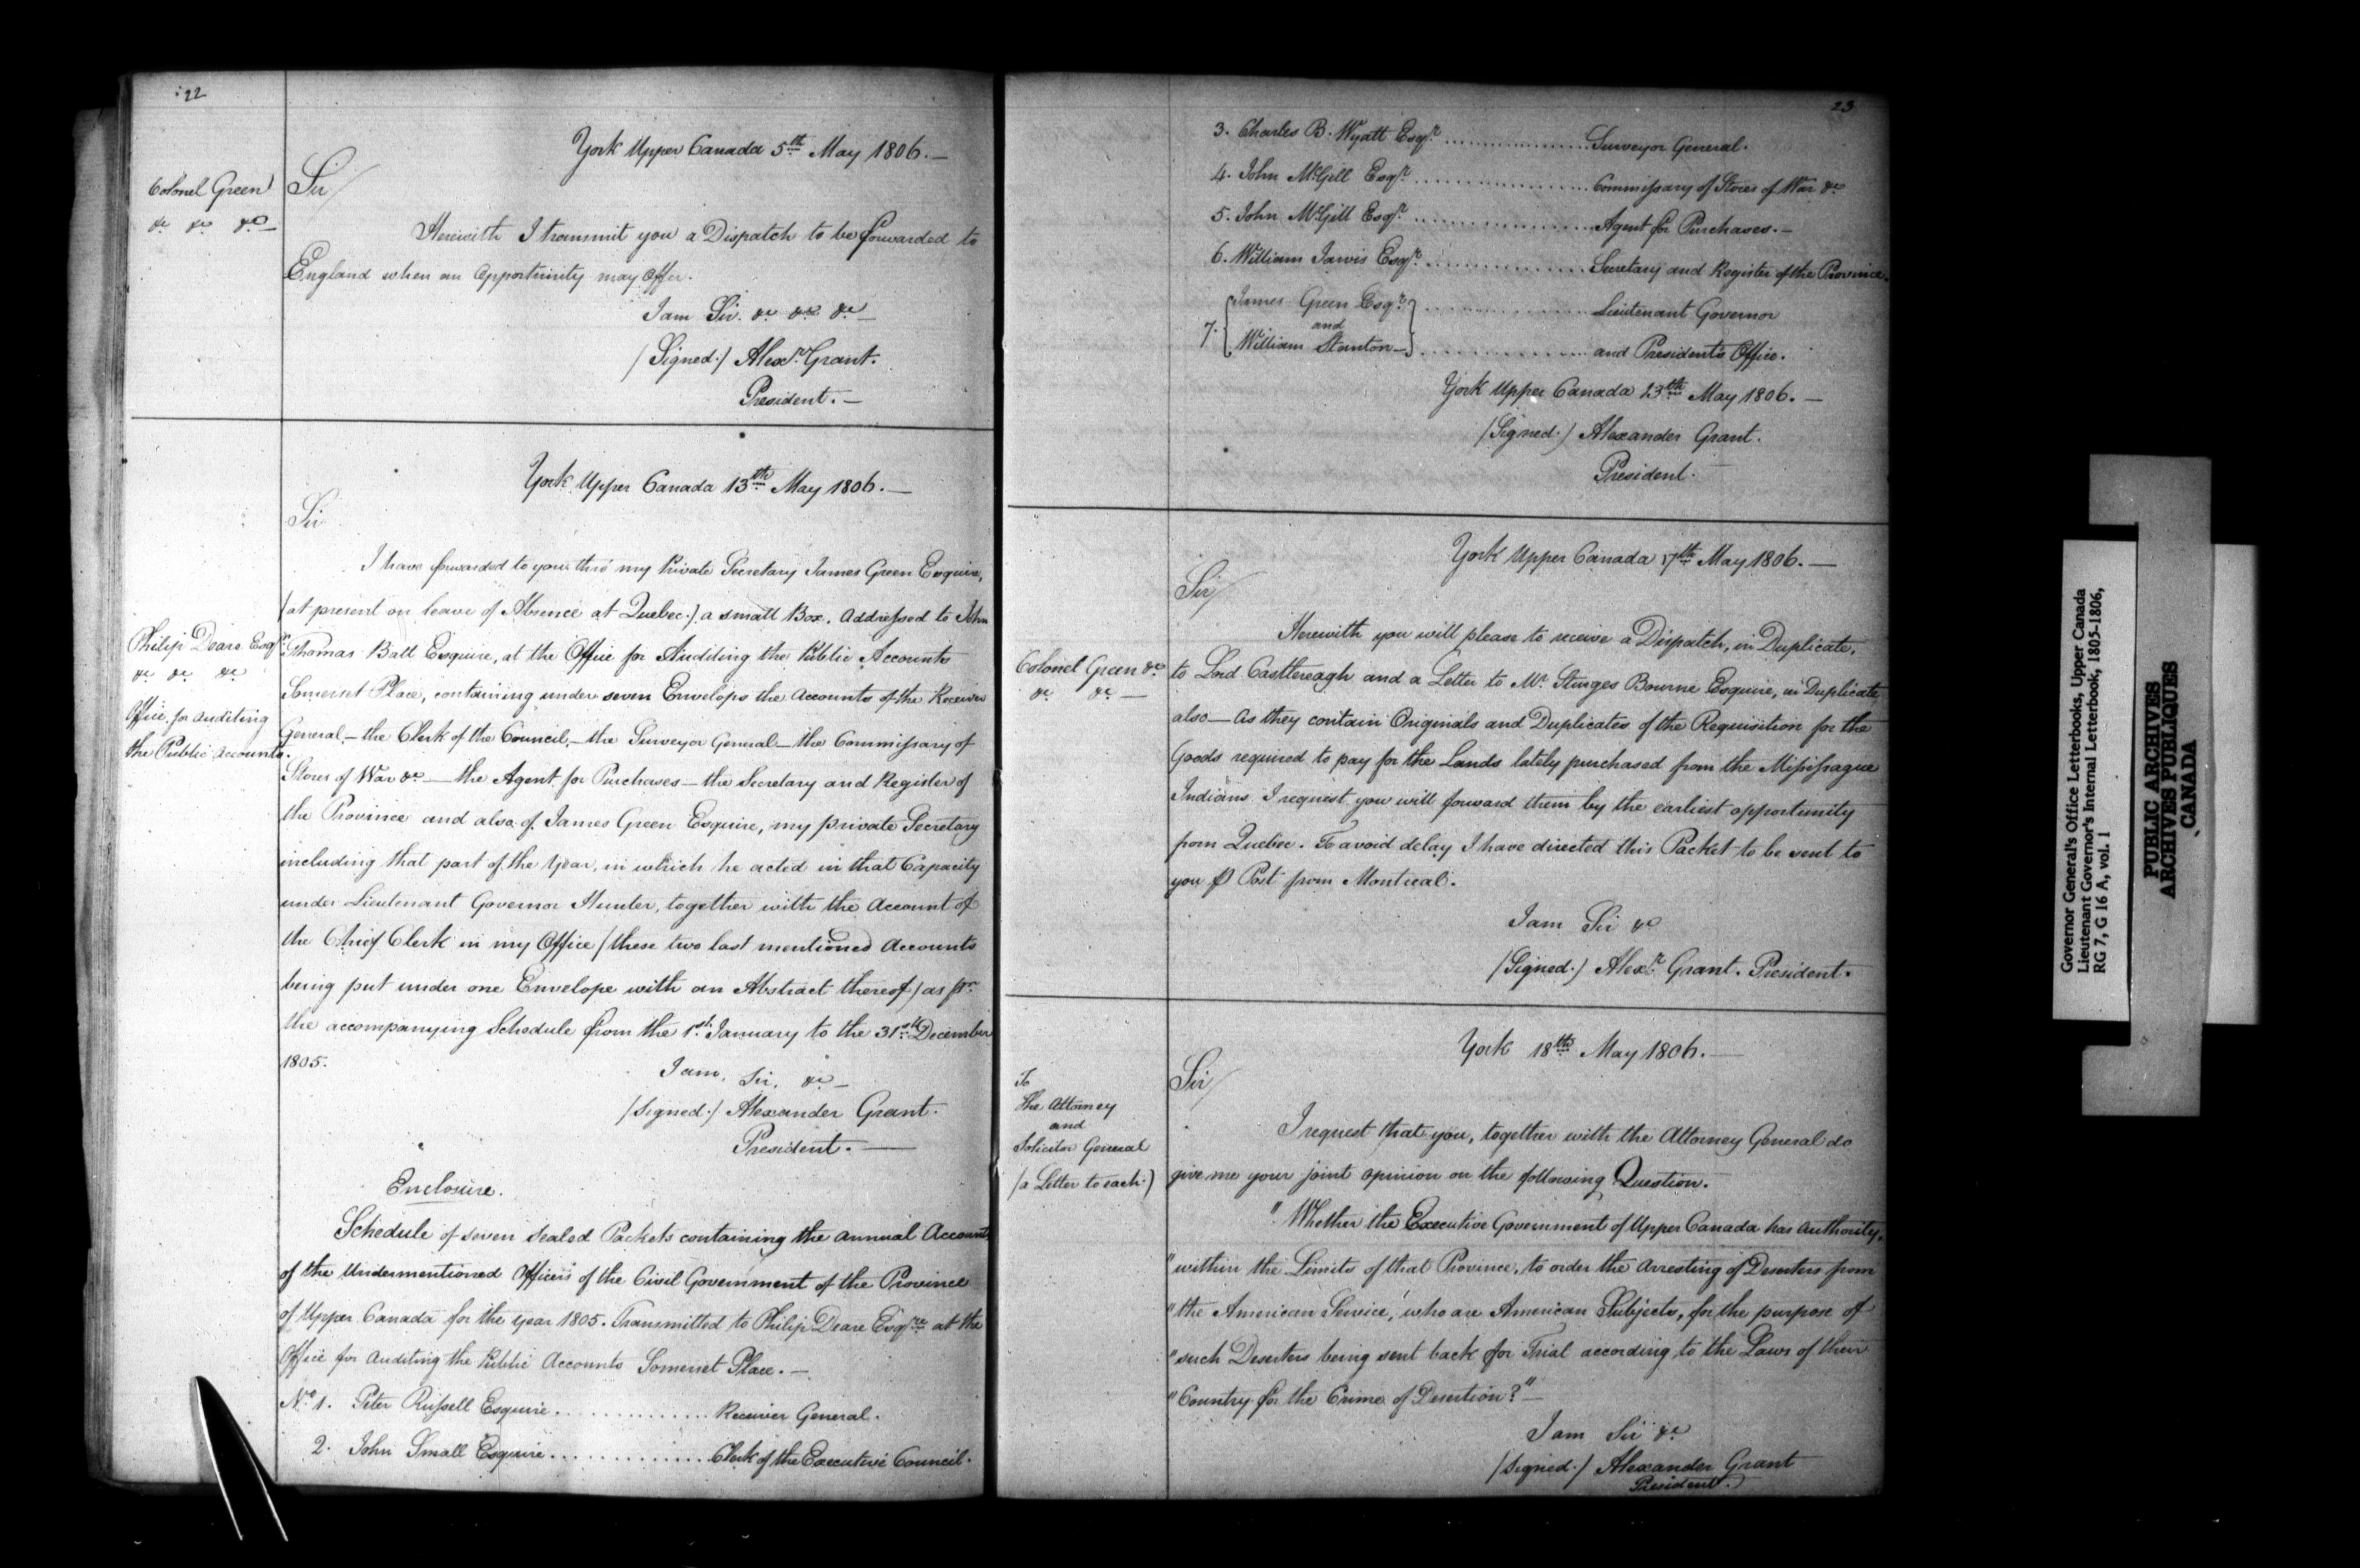 22
York Upper Canada 5th May 1806.—
Colonel Green
&c &c &c—
Sir/
Herewith I transmit you a Dispatch to be forwarded to
England when an Opportunity may Offer.
I am Sir. &c &c &c—
(Signed.) Alexr. Grant.
President.—
York Upper Canada 13th May 1806.—
Sir
Philip Deare Esqr.
&c &c &c
Office for Auditing
the Public Accounts.
I have forwarded to you thro' my Private Secretary James Green Esquire,
(at present on leave of Absence at Quebec.) a small Box. Addressed to John
Thomas Batt Esquire, at the Office for Auditing the Public Accounts
Somerset Place, containing under seven Envelops the Accounts of the Receiver
General,—the Clerk of the Council,—the Surveyor General—the Commissary of
Stores of War &c—the Agent for Purchases—the Secretary and Register of
the Province and also of James Green Esquire, my private Secretary
including that part of the Year, in which he acted in that Capacity
under Lieutenant Governor Hunter, together with the Account of
the Chief Clerk in my Office (these two last mentioned Accounts
being put under one Envelope with an Abstract thereof) as pr.
the accompanying Schedule from the 1st January to the 31st December
1805.
I am, Sir, &c—
(Signed.) Alexander Grant.
President.—
Enclosure.
Schedule of seven sealed Packets containing the annual Accounts
of the Undermentioned Officers of the Civil Government of the Province
of Upper Canada for the year 1805. Transmitted to Philip Deare Esqre. at the
Office for Auditing the Public Accounts Somerset Place.—
No. 1. Peter Russell Esquire. . . . . . . . . . . . . . Receiver General.
2. John Small Esquire. . . . . . . . . . . . . . Clerk of the Executive Council.
23
3. Charles B. Wyatt Esqr. . . . . . . . . . . . . . . Surveyor General.
4. John McGill Esqr. . . . . . . . . . . . . . . Commissary of Stores of War &c
5. John McGill Esqr. . . . . . . . . . . . . . . Agent for Purchases.—
6. William Jarvis Esqr. . . . . . . . . . . . . . . Secretary and Register of the Province.
7. {James Green Esqr.} . . . . . . . . . . . . . . Lieutenant Governor
and
William Stanton— . . . . . . . . . . . . . . and President's Office.
York Upper Canada 13th May 1806.—
(Signed.) Alexander Grant.
President.
York Upper Canada 17th May 1806.—
Sir/
Colonel Green &c
&c &c—
Herewith you will please to receive a Dispatch, in Duplicate,
to Lord Castlereagh and a Letter to Mr. Sturges Bourne Esquire, in Duplicate
also—As they contain Originals and Duplicates of the Requisition for the
Goods required to pay for the Lands lately purchased from the Missisague
Indians I request you will forward them by the earliest opportunity
from Quebec. To avoid delay I have directed this Packet to be sent to
you P Post from Montreal.
I am Sir &c
(Signed.) Alexr. Grant. President.
York 18th May 1806.—
Sir/
To
the Attorney
and
Solicitor General
(a Letter to each.)
I request that you, together with the Attorney General do
give me your joint opinion on the following Question.
"Whether the Executive Government of Upper Canada has Authority,
"within the Limits of that Province, to order the Arresting of Deserters from
"the American Service, who are American Subjects, for the purpose of
"such Deserters being sent back for Trial according to the Laws of their
"Country for the Crime of Desertion?"—
I am Sir &c
(Signed.) Alexander Grant
President.
Governor General's Office Letterbooks, Upper Canada
Lieutenant Governor's Internal Letterbook, 1805-1806,
RG 7, G 16 A, vol. 1
PUBLIC ARCHIVES
ARCHIVES PUBLIQUES
CANADA